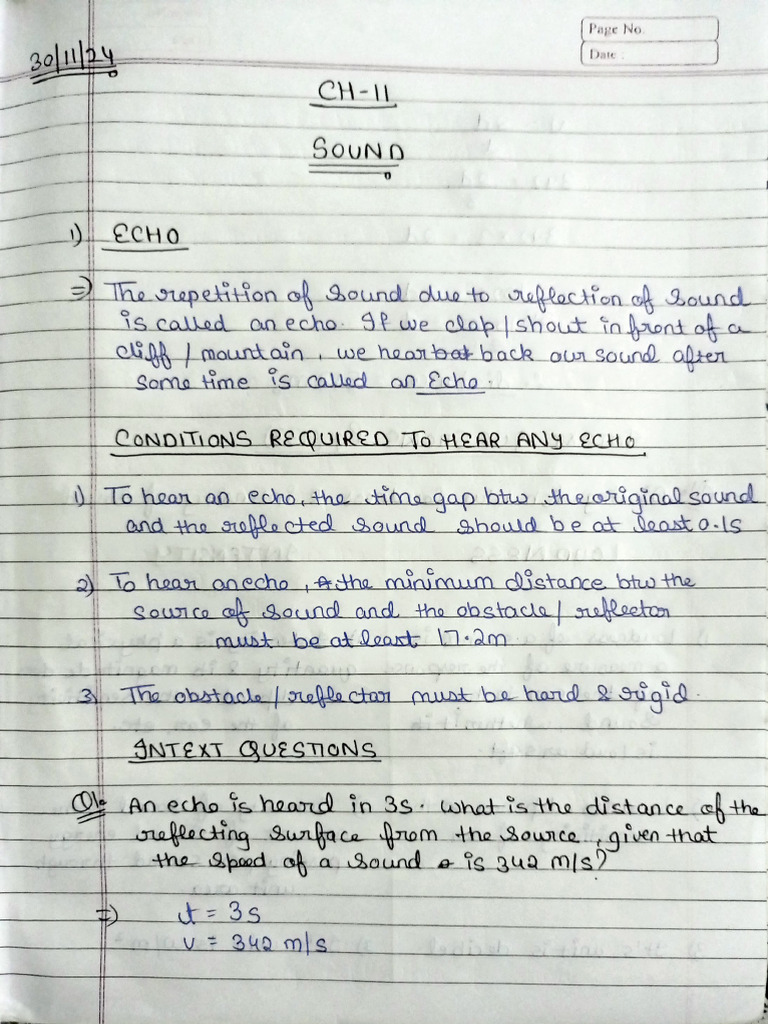 Page No.
Date :
30/11/24
CH-11
SOUND
1) ECHO
=) The repetition of sound due to reflection of sound
is called an echo. If we clap / shout in front of a
cliff / mountain, we hear back our sound after
some time is called an Echo.
CONDITIONS REQUIRED TO HEAR ANY ECHO
1) To hear an echo, the time gap btw the original sound
and the reflected sound should be at least 0.1s
2) To hear an echo, the minimum distance btw the
source of sound and the obstacle / reflector
must be at least 17.2m
3) The obstacle / reflector must be hard & rigid.
INTEXT QUESTIONS
Q1. An echo is heard in 3s. what is the distance of the
reflecting surface from the source, given that
the speed of a sound is 342 m/s?
=) t = 3s
v = 342 m/s